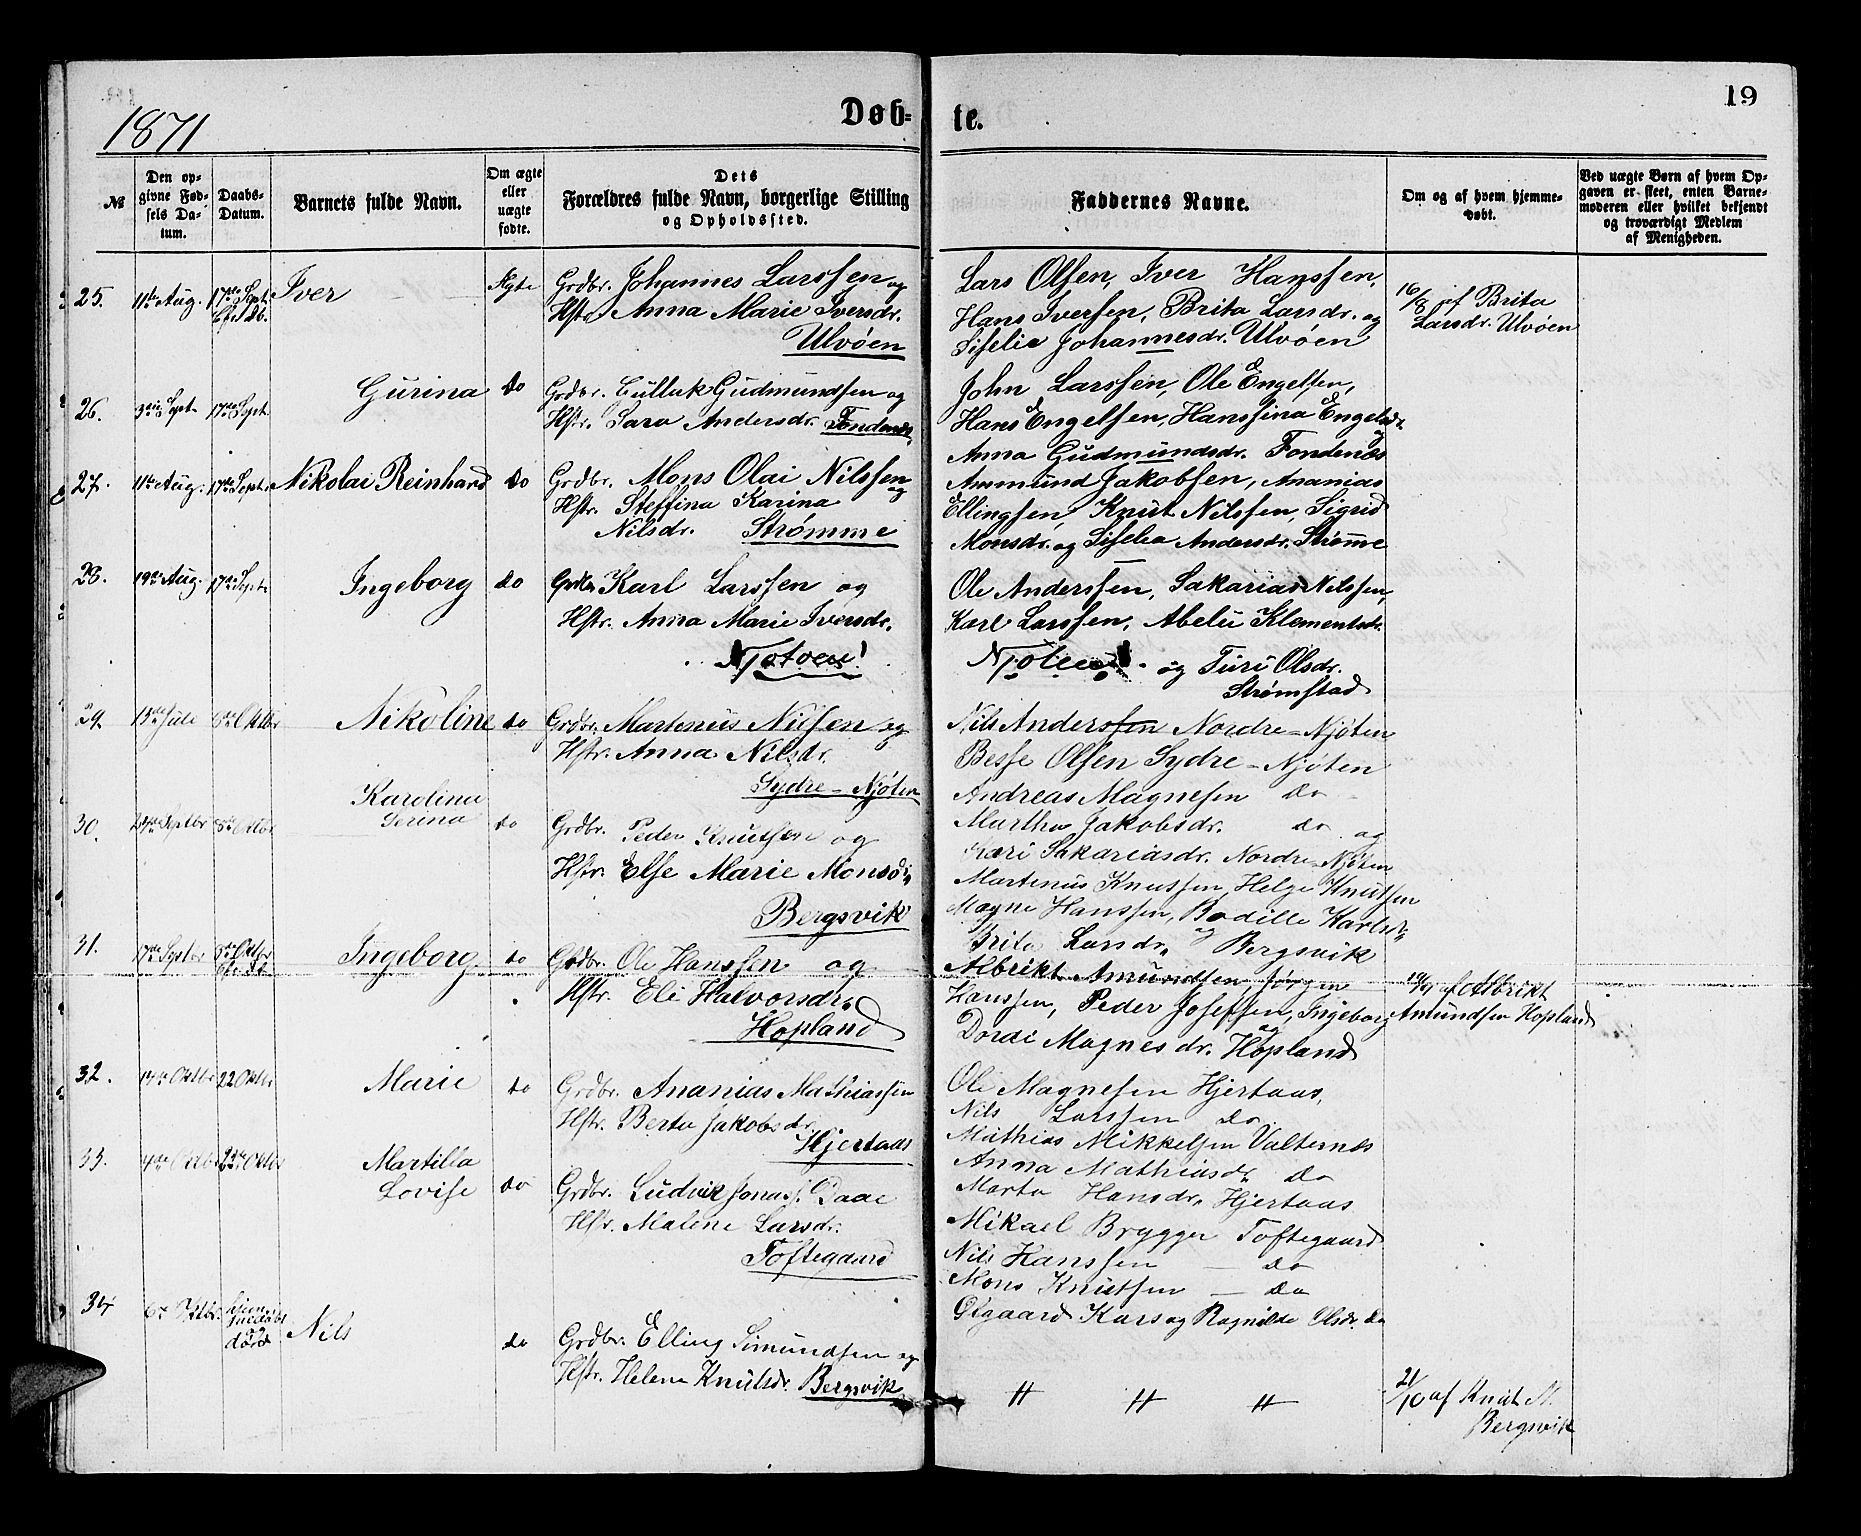 1871
Døb-
te.
19
№
Den op-
givne Fød-
sels Da-
tum.
Daabs-
Datum.
Barnets fulde Navn.
Om ægte
eller
uægte
fødte.
Dets
Forældres fulde Navn, borgerlige Stilling
og Opholdssted.
Faddernes Navne.
Om og af hvem hjemme-
døbt.
Ved uægte Børn af hvem Op-
gaven er skeet, enten Barne-
moderen eller hvilket bekjendt
og troværdigt Medlem
af Menigheden.
25. 11te Aug. 17de Sept. Iver Ægte
Grdbr. Johannes Larssen og
Hstr. Anna Marie Iversdr.
Ulvøen
Lars Olsen, Iver Hanssen,
Hans Iversen, Brita Larsdr. og
Sifelie Johannesdr. Ulvøen
16/8 af Brita
Larsdr. Ulvøen
26. 3die Sept. 17de Sept. Gurina do
Grdbr. Gulluk Gudmundsen og
Hstr. Sara Andersdr. Fondenæs
John Larssen, Ole Engelsen,
Hans Engelsen, Hanssina Engelsdr.
og
Anna Gudmundsdr. Fondenæs
27. 11te Aug. 17de Sept. Nikolai Reinhard do
Grdbr. Mons Olai Nilssen
og
Hstr. Steffina Karina
Nilsdr. Strømme
Ammund Jakobsen, Ananias
Ellingsen, Knut Nilssen, Sigrid
Monsdr. og Sifelia Andersdr. Strømme
28. 19de Aug. 17de Sept. Ingeborg do
Karl Larssen og
Hstr. Anna Marie Iversdr.
Njøten
Ole Anderssen, Sakarias Nilssen,
Karl Larssen, Abelii Klementsdr.
Njøten og Turi Olsdr.
Strømstad
29. Jule 8de Oktbr Nikoline do
Grdbr. Martenus Nilsen og
Hstr. Anna Nilsdr.
Sydre-Njøten
Nils Anderssen Nordre-Njøten
Besse Olsen Sydre-Njøten
Andreas Magnesen do
Martha Jakobsdr. do og
Kari Sakariasdr. Nordre-Njøten
30. Septbr 8de Oktbr Karolina
Serina do
Grdbr. Peder Knutsen og
Hstr. Else Marie Monsdr.
Bergsvik
Martenus Knutsen, Helge Knutsen
Magne Hanssen, Bodille Karlsdr.
og
Brita Larsdr. Bergsvik
31. 17de Septbr 8de Oktbr Ingeborg do
Grdbr. Ole Hanssen og
Hstr. Eli Halvorsdr.
Hopland
Albrikt Amundsen, Jørgen
Hanssen, Peder Josefsen, Ingeborg
og
Dordi Magnesdr. Hopland
19/9 af Albrikt
Amundsen Hopland
32. 14de Oktbr 22 Oktbr Marie do
Grdbr. Ananias Mathiassen
Hstr. Berta Jakobsdr.
Hjertaas
Ole Magnesen Hjertaas,
Nils Larssen do
Mathias Mikkelsen Valternes
Anna Mathiasdr. do
Marta Hansdr. Hjertaas
33. 4de Oktbr 22de Oktbr Martilla
Lovise do
Grdbr. Ludvik Jonas. Daae
Hstr. Malene Larsdr.
Toftegaard
Mikael Brygger Toftegaard
Nils Hanssen — do
Mons Knutsen — do
Kars og Ragnilde Olsdr. do
34 6te Oktbr. hjem-
medøbt
og
død Nils do
Grdbr. Elling Simundsen og
Hstr. Helena Knutsdr. Bergsvik
" " "
21/10 af Knut N.
Bergsvik